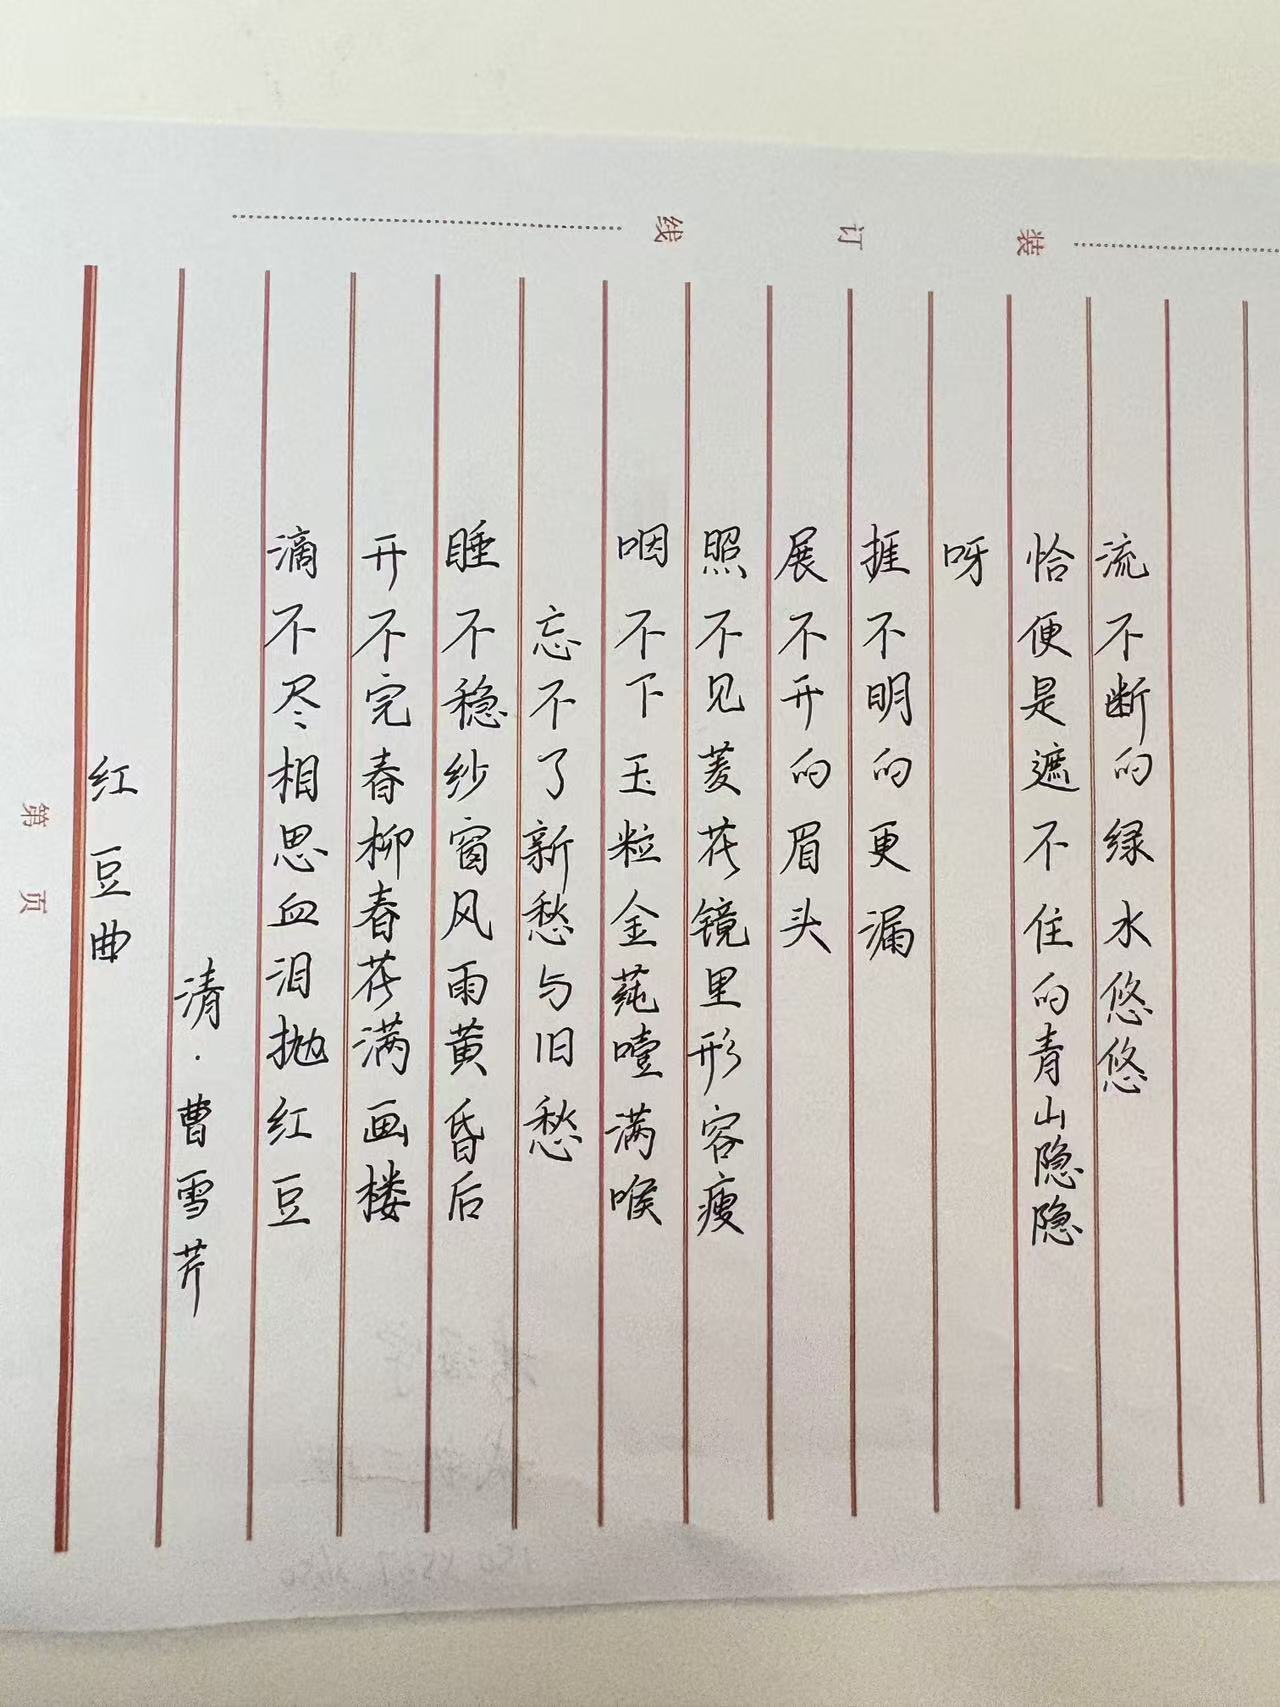 装订线
红豆曲
清·曹雪芹
滴不尽相思血泪抛红豆
开不完春柳春花满画楼
睡不稳纱窗风雨黄昏后
忘不了新愁与旧愁
咽不下玉粒金莼噎满喉
照不见菱花镜里形容瘦
展不开的眉头
捱不明的更漏
呀
恰便是遮不住的青山隐隐
流不断的绿水悠悠
第 页